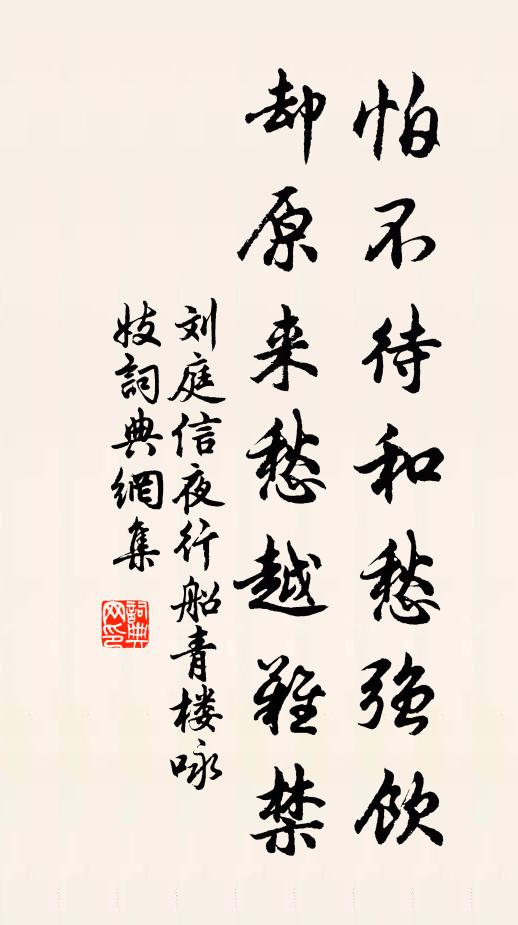 怕不待和愁強飲
却原来愁越難禁
刘庭信夜行船青楼咏
妓詞典網集
詞典网印